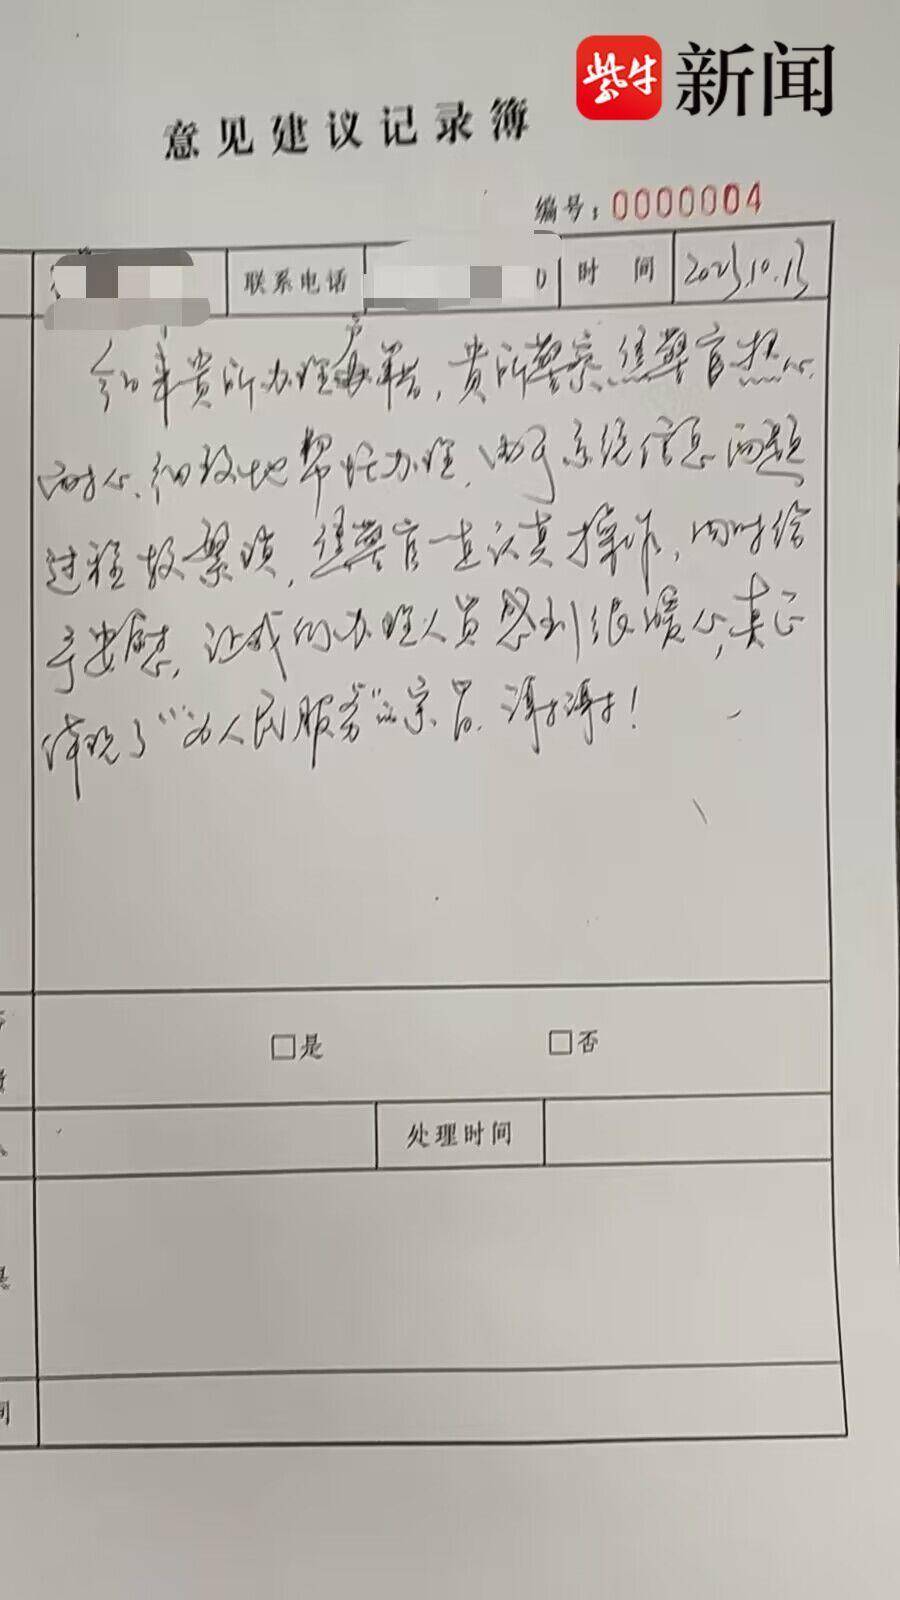 紫牛新闻
意见建议记录簿
编号：0000004
联系电话
0
时间
2023.10.13
今日来贵所办理户籍，贵所警察焦警官热心、
耐心、细致地帮忙办理，由于系统信息问题
过程较繁琐，焦警官一直认真操作，同时给
予安慰，让我们办理人员感到很暖心，真正
体现了“为人民服务”的宗旨．谢谢谢谢！
□是
□否
处理时间